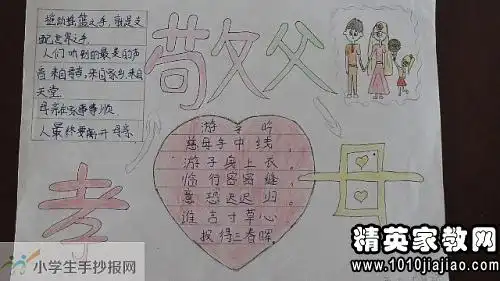 推动摇篮之手,就是支
配世界之手。
人们听到的最美的声
音来自母亲,来自家乡,来自
天堂。
母亲在家事事顺
人最终要离开母亲
敬父
孝
母
游子吟
慈母手中线,
游子身上衣。
临行密密缝,
意恐迟迟归。
谁言寸草心
报得三春晖。
小学生手抄报网
精英家教网
www.1010jiajiao.com